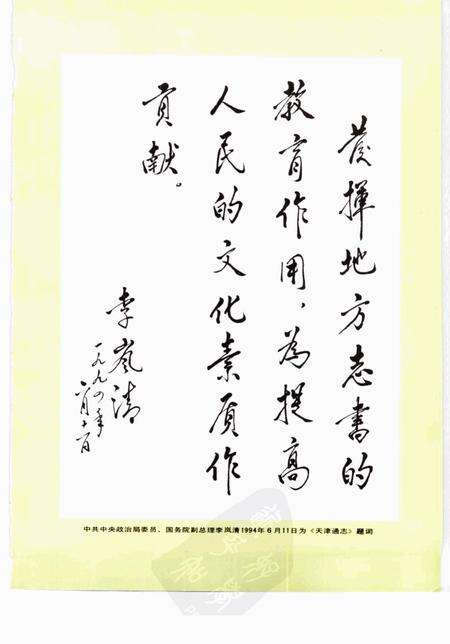 發揮地方志書的
教育作用，為提高
人民的文化素质作
貢献。
李岚清
一九九四年
六月十一日
中共中央政治局委员、国务院副总理李岚清1994年6月11日为《天津通志》题词